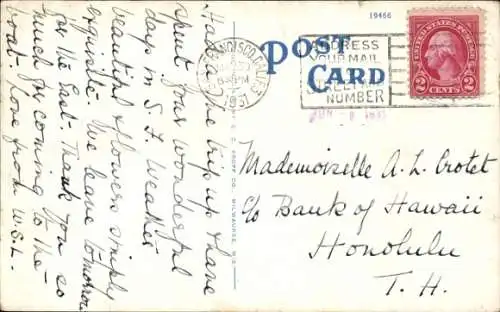 19466
POST CARD
SAN FRANCISCO, CALIF.
6 PM
1931
ADDRESS
YOUR MAIL
STREET AND
NUMBER
UNITED STATES POSTAGE
2 CENTS 2
Mademoiselle A. L. Crotet
c/o Bank of Hawaii
Honolulu
T. H.
Had a fine trip up & have
spent four wonderful
days in S. F. Weather
beautiful & flowers simply
exquisite. We leave tomorrow
for the East. Thank you so
much for coming to the
boat. Love from W.S.L.
CO., MILWAUKEE, WIS.